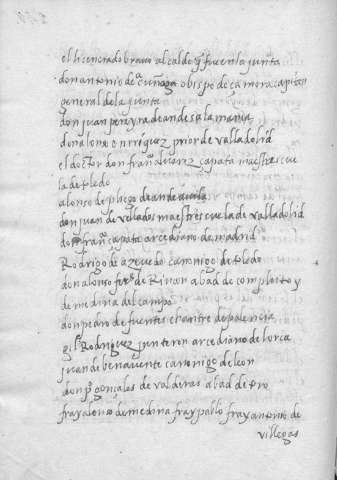 el licenciado bravo alcalde q̃ fue en la junta
don antonio de acuña obispo de çamora capitan
general de la junta
don juan pereyra dean de salamanca
don alonso enrriquez prior de valladolid
el doctor don fran.co alvarez çapata maestrescue
la de toledo
alonso de pliego dean de avila
don juan de collados maestrescuela de valladolid
don fran.co çapata arcediano de madrid
Rodrigo de azevedo canonigo de toledo
don alonso fer.z de Rincon abad de compluto y
de medina del campo
don pedro de fuentes chantre de palencia
gil Rodriguez junteron arcediano de lorca
juan de benavente canonigo de leon
don p.o gonçales de valderas abad de toro
fray alonso de medina fray pablo fray antonio de
villegas